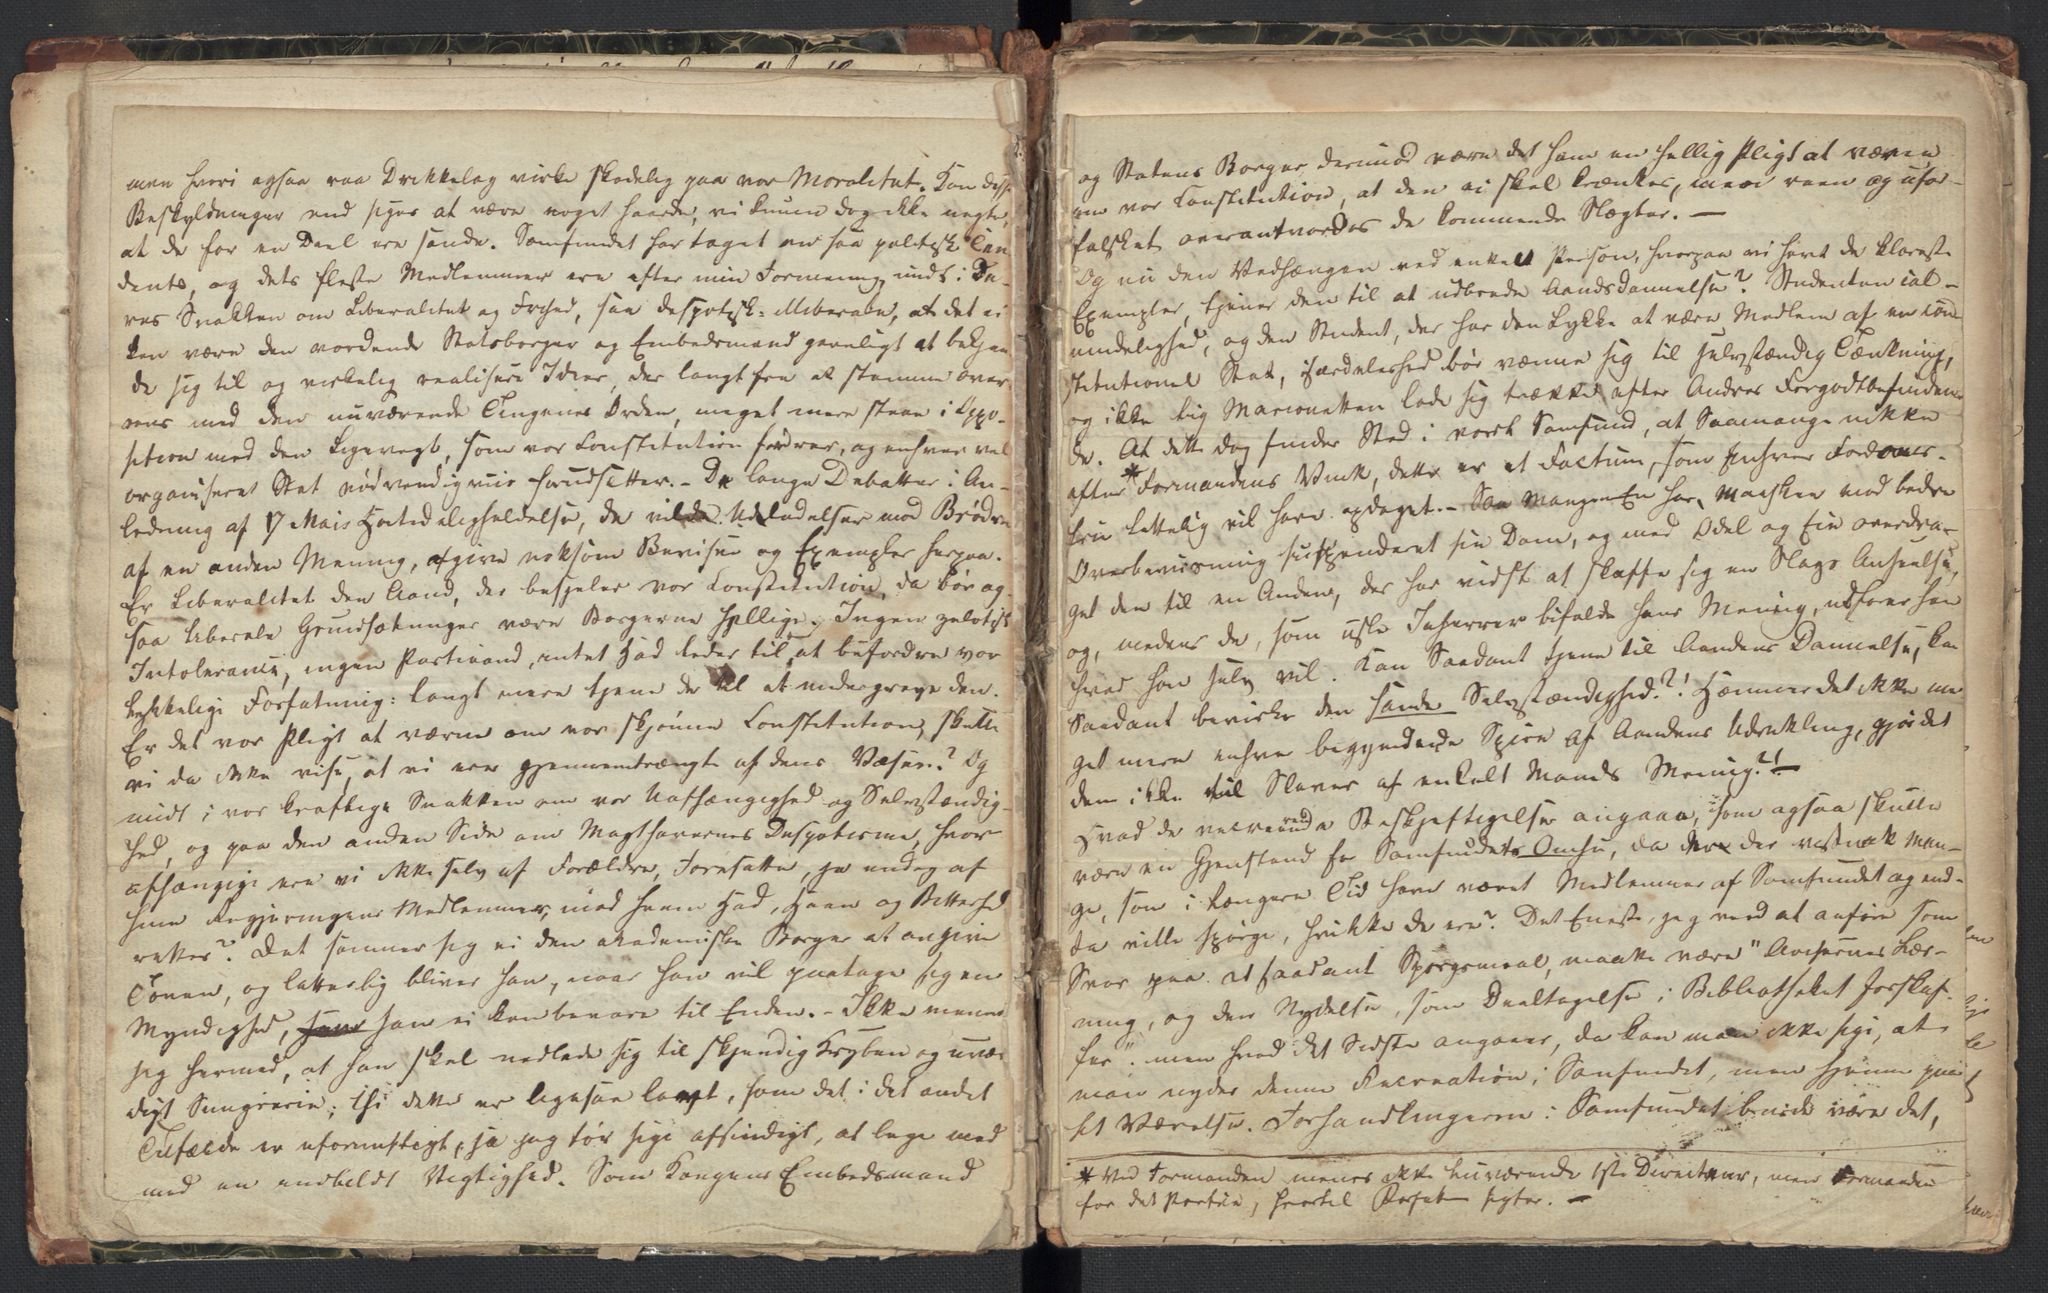 men hvori ogsaa raa Drikkelag virke skadelig paa vor Moralitet. Kan disse
Beskyldninger end siges at være noget haarde, vi kunne dog ikke negte,
at de for en Deel ere sande. Samfundet har taget en saa politisk Ten-
dents, og dets fleste Medlemmer ere efter min Formening midt i De-
res Snakken om Liberalitet og Frihed, saa despotisk-illiberale, at det ei
kan være den vordende Statsborger og Embedsmand gavnligt at bekjen-
de sig til og virkelig realisere Ideer, der langt fra at stemme over-
eens med den nuværende Tingenes Orden, meget mere staae i Oppo-
sition med den Ligevegt, som vor Constitution fordrer, og enhver vel
organiseret Stat nødvendigviis forudsætter. - De lange Debatter i An-
ledning af 17 Mais Høitideligholdelse, de vilde Udladelser mod Brødre
af en anden Mening, afgive noksom Beviser og Exempler herpaa.
Er Liberalitet den Aand, der besjeler vor Constitution, da bør og-
saa liberale Grundsætninger være Borgerne hellige. Ingen zelotisk
Intolerance, ingen Partieaand, intet Had leder til at befordre vor
lykkelige Forfatning: langt mere tjene de til at undergrave den.
Er det vor Pligt at værne om vor skjønne Constitution, skulle
vi da ikke vise, at vi ere gjennemtrængte af dens Væsen? Og
midt i vor kraftige Snakken om vor Uafhængighed og Selvstændig-
hed, og paa den anden Side om Magthavernes Despotisme, hvor
afhængige ere vi ikke selv af Forældre, Foresatte, ja endog af
hine Regjeringens Medlemmer, mod hvem Had, Haan og Bitterhed
vækkes? Det sømmer sig ei den akademiske Borger at angive
Tonen, og latterlig bliver han, naar han vil paatage sig en
Myndighed, han ei kan bevare til Enden. - Ikke mener
jeg hermed, at han skal nedlade sig til skjendig Kryben og uvær-
digt Smigrerie; thi dette er ligesaa lavt, som det i det andet
Tilfælde er ufornuftigt, ja jeg tør sige afsindigt, at lege med
med en indbildt Vigtighed. Som Kongens Embedsmand
og Statens Borger derimod være det ham en hellig Pligt at værne
om vor Constitution, at den ei skal krænkes, men reen og ufor-
falsket overantvordes de kommende Slægter. -
Og nu den Vedhængen ved enkelt Person, hvorpaa vi havt de klareste
Exempler, tjener den til at udbrede Aandsdannelse? Studenten i Al-
mindelighed, og den Student, der har den Lykke at være Medlem af en con-
stitutionel Stat, isærdeleshed bør vænne sig til selvstændig Tænkning,
og ikke lig Marionetten lade sig trække efter Andres Forgodtbefinden-
de. At dette dog finder Sted i vort Samfund, at Saamange nikke
efter *Formandens Vink, dette er et Factum, som enhver Fordoms-
frie lettelig vil have opdaget. - Saa mangen En har, maaskee mod bedre
Overbeviisning suspenderet sin Dom, og med Odel og Eie overdra-
get den til en Anden, der har vidst at skaffe sig en Slags Anseelse,
og, medens de, som usle Jaherrer bifalde hans Mening, udfører han
hvad han selv vil. Kan Saadant tjene til Aandens Dannelse, kan
Saadant bevirke den sande Selvstændighed?! Hæmmer det ikke me-
get mere enhver begyndende Spire af Aandens Udvikling, gjør det
dem ikke til Slaver af enkelt Mands Mening?! -
Hvad de recreerende Beskjeftigelser angaaer, som ogsaa skulle
være en Gjenstand for Samfundets Omhu, da der vistnok Man-
ge, som i længere Tid have været Medlemmer af Samfundet og end-
da ville spørge, hvilke de ere? Det Eneste, jeg veed at anføre som
Svar paa et saadant Spørgsmaal, maatte være "Avisernes Læs-
ning, og den Nydelse, som Deeltagelse i Bibliotheket forskaf-
fer": men hvad det Sidste angaaer, da kan man ikke sige, at
man nyder denne Recreation i Samfundet, men hjemme paa
sit Værelse. Forhandlingerne i Samfundet burde være det,
* Ved Formanden menes ikke nuværende 1ste Directeur, men Formanden
for det Partie, hvortil Forfatt. sigter. -